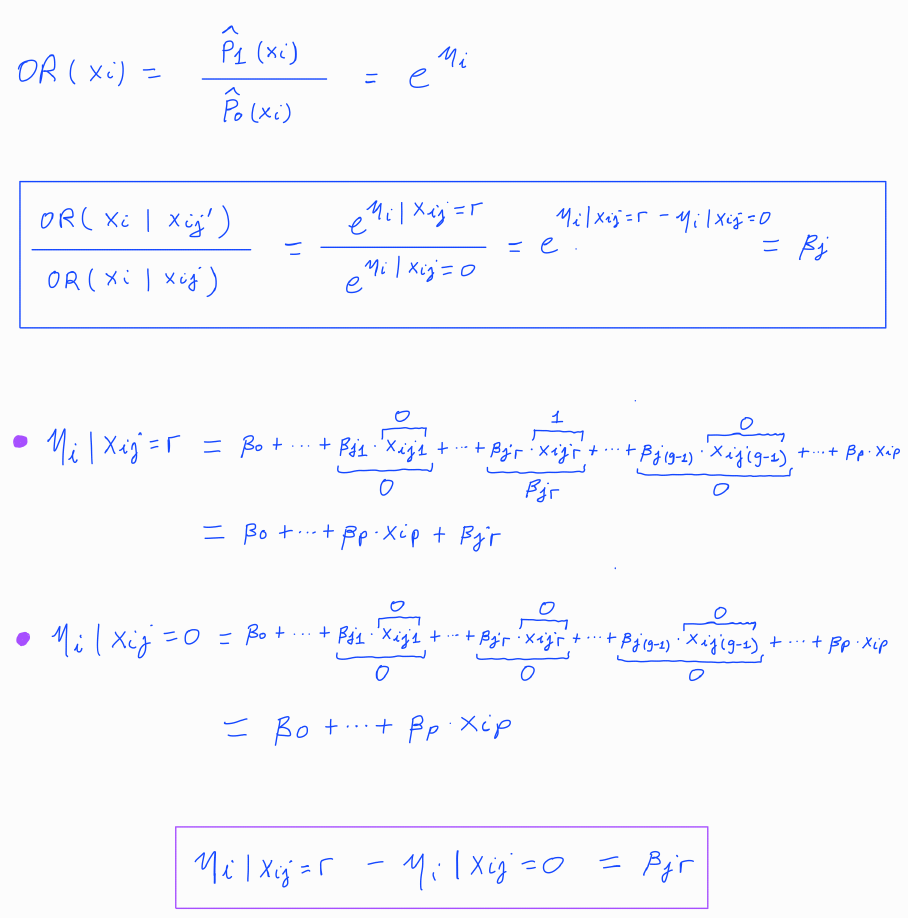 OR(xi) = P̂1(xi) / P̂0(xi) = e^ηi
OR(xi | xij') / OR(xi | xij) = e^(ηi | xij=r) / e^(ηi | xij=0) = e^(ηi | xij=r − ηi | xij=0) = βj
0 1 0
• ηi | xij=r = β0 + ··· + βj1 · xij1 + ··· + βjr · xijr + ··· + βj(g-1) · xij(g-1) + ··· + βp · xip
0 βjr 0
= β0 + ··· + βp · xip + βjr
0 0 0
• ηi | xij=0 = β0 + ··· + βj1 · xij1 + ··· + βjr · xijr + ··· + βj(g-1) · xij(g-1) + ··· + βp · xip
0 0 0
= β0 + ··· + βp · xip
ηi | xij=r − ηi | xij=0 = βjr